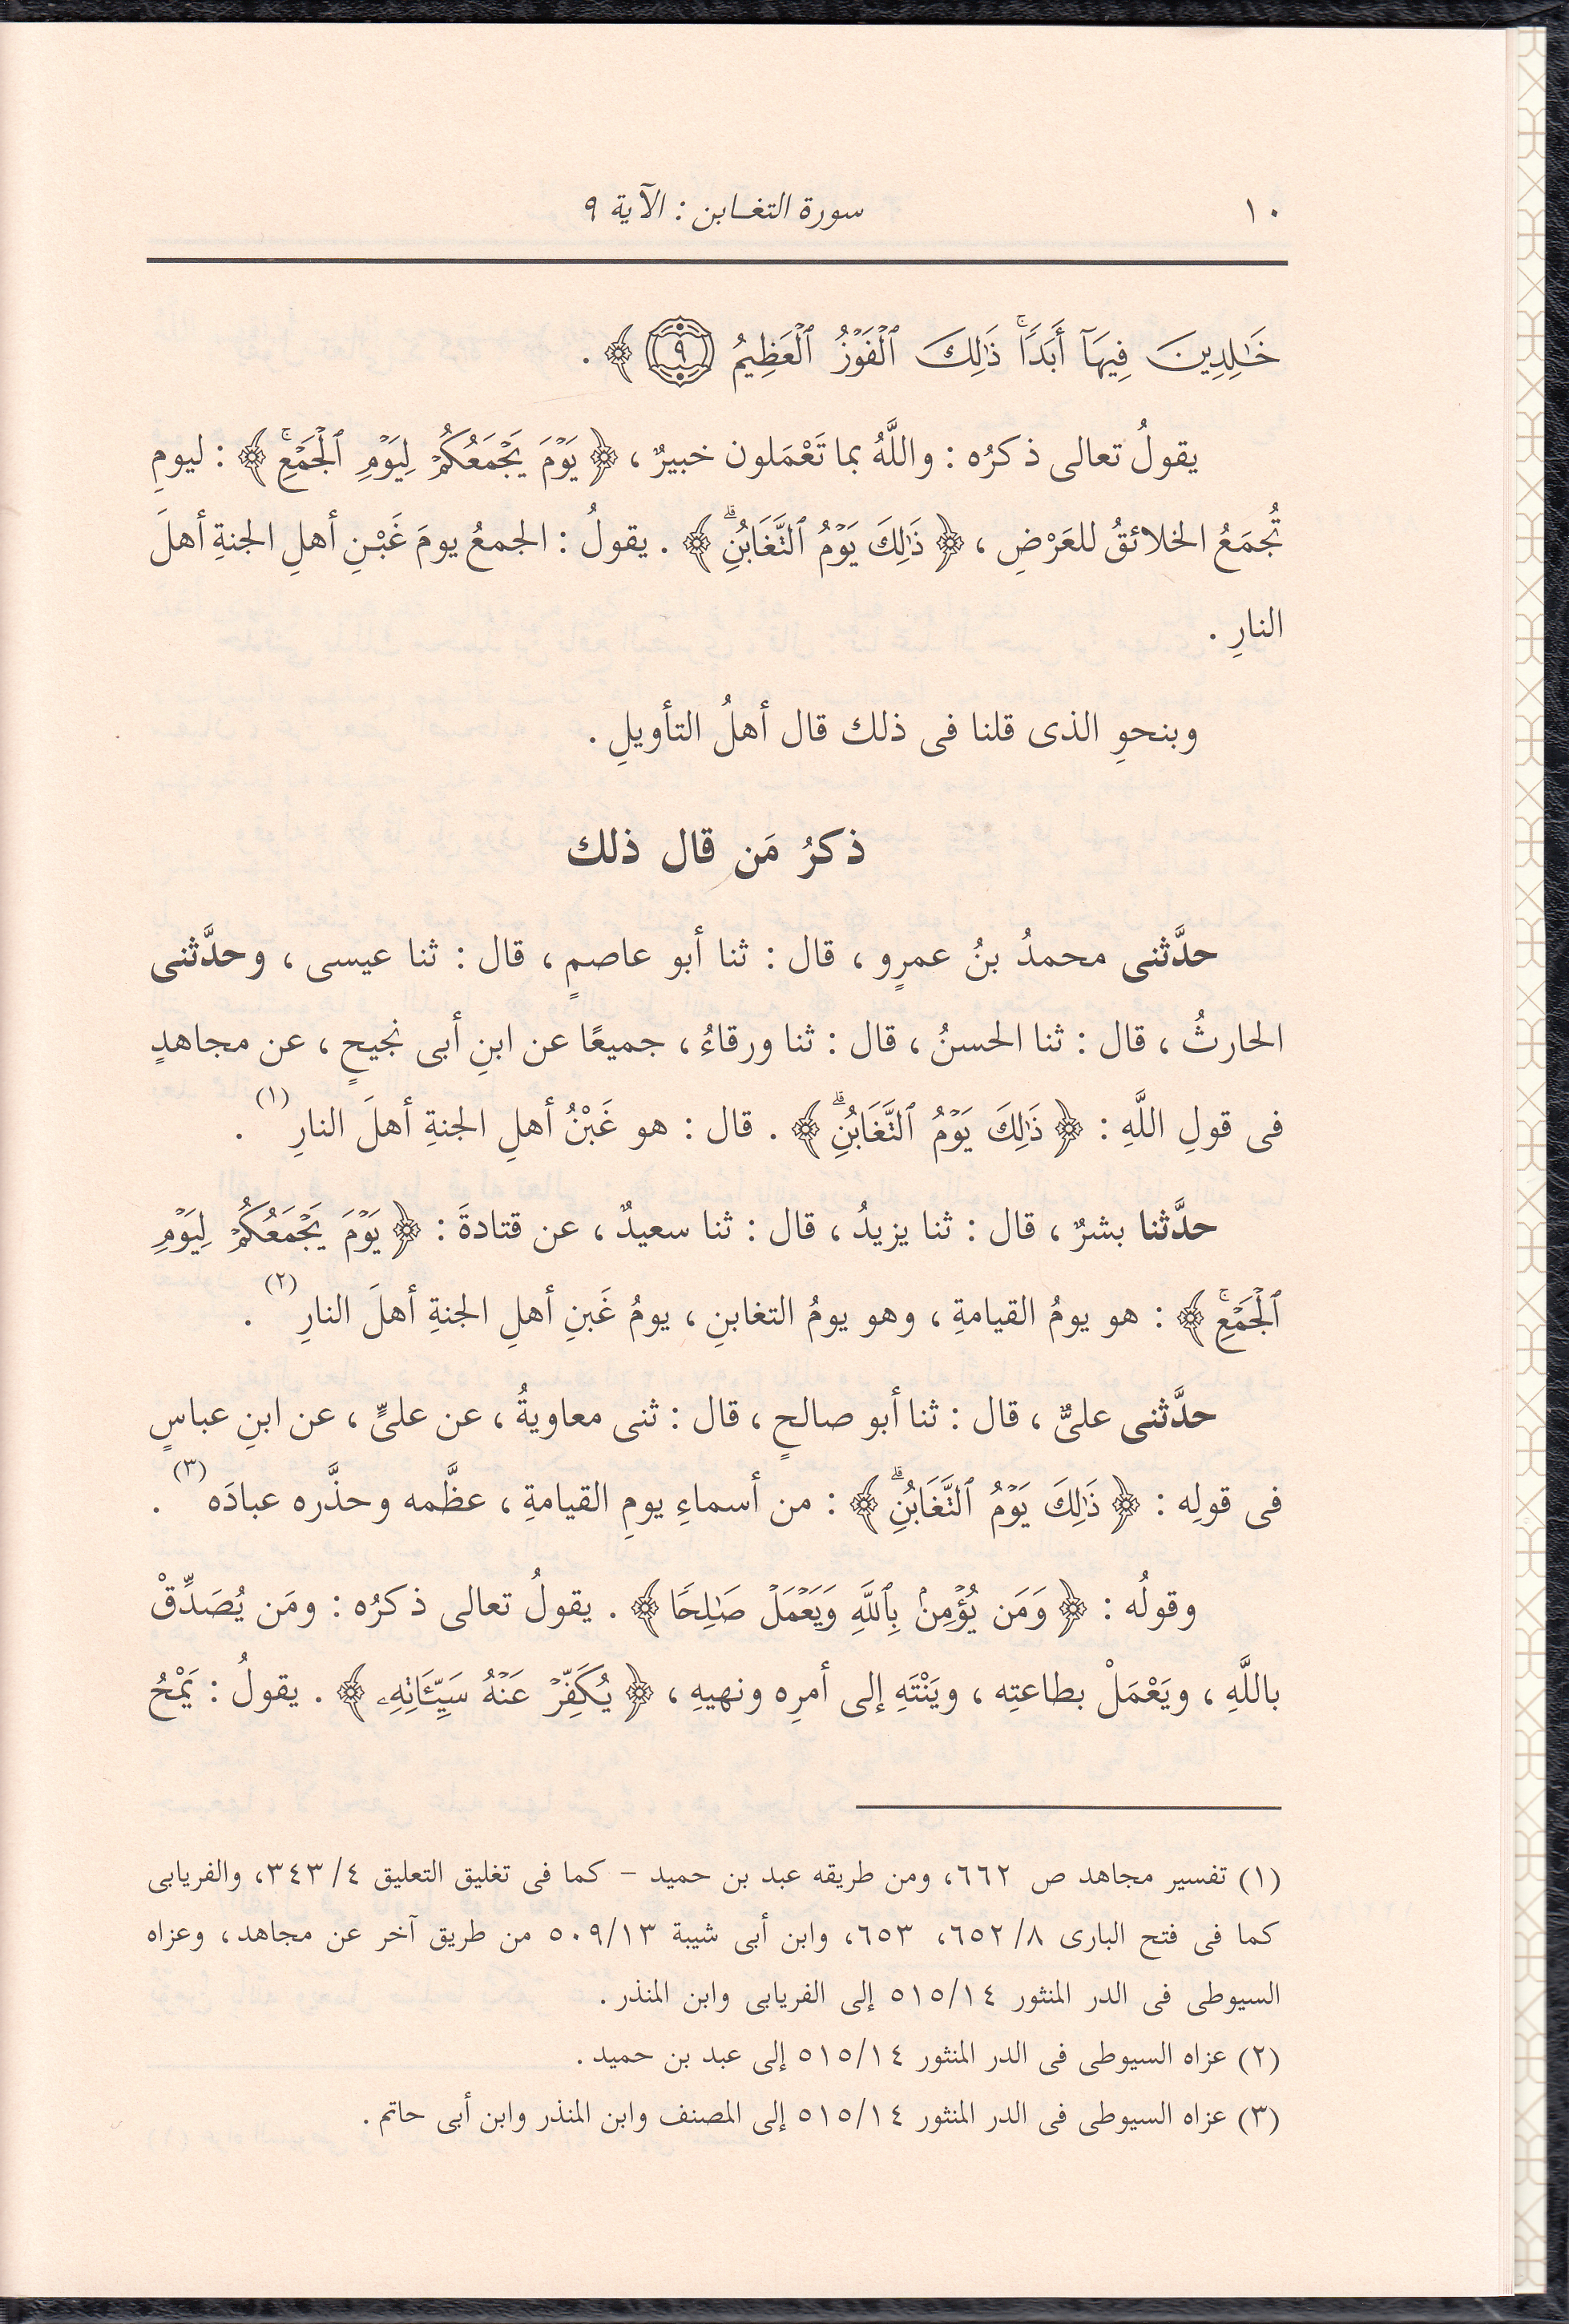 ١٠
سورة التغـابن : الآية ٩
خَٰلِدِينَ فِيهَآ أَبَدٗاۚ ذَٰلِكَ ٱلۡفَوۡزُ ٱلۡعَظِيمُ ٩ ﴾ .
يقولُ تعالى ذكرُه : واللَّهُ بما تَعْمَلون خبيرٌ ، ﴿ يَوۡمَ يَجۡمَعُكُمۡ لِيَوۡمِ ٱلۡجَمۡعِۚ ﴾ : ليومِ
تُجمَعُ الخلائقُ للعَرْضِ ، ﴿ ذَٰلِكَ يَوۡمُ ٱلتَّغَابُنِۗ ﴾ . يقولُ : الجمعُ يومَ غَبْنِ أهلِ الجنةِ أهلَ
النارِ .
وبنحوِ الذى قلنا فى ذلك قال أهلُ التأويلِ .
ذكرُ مَن قال ذلك
حدَّثنى محمدُ بنُ عمرٍو ، قال : ثنا أبو عاصمٍ ، قال : ثنا عيسى ، وحدَّثنى
الحارثُ ، قال : ثنا الحسنُ ، قال : ثنا ورقاءُ ، جميعًا عن ابنِ أبى نجيحٍ ، عن مجاهدٍ
فى قولِ اللَّهِ : ﴿ ذَٰلِكَ يَوۡمُ ٱلتَّغَابُنِۗ ﴾ . قال : هو غَبْنُ أهلِ الجنةِ أهلَ النارِ (١) .
حدَّثنا بشرٌ ، قال : ثنا يزيدُ ، قال : ثنا سعيدٌ ، عن قتادةَ : ﴿ يَوۡمَ يَجۡمَعُكُمۡ لِيَوۡمِ
ٱلۡجَمۡعِۚ ﴾ : هو يومُ القيامةِ ، وهو يومُ التغابنِ ، يومُ غَبنِ أهلِ الجنةِ أهلَ النارِ (٢) .
حدَّثنى علىٌّ ، قال : ثنا أبو صالحٍ ، قال : ثنى معاويةُ ، عن علىٍّ ، عن ابنِ عباسٍ
فى قولِه : ﴿ ذَٰلِكَ يَوۡمُ ٱلتَّغَابُنِۗ ﴾ : من أسماءِ يومِ القيامةِ ، عظَّمه وحذَّره عبادَه (٣) .
وقولُه : ﴿ وَمَن يُؤۡمِنۢ بِٱللَّهِ وَيَعۡمَلۡ صَٰلِحٗا ﴾ . يقولُ تعالى ذكرُه : ومَن يُصَدِّقْ
باللَّهِ ، ويَعْمَلْ بطاعتِه ، ويَنْتَهِ إلى أمرِه ونهيِهِ ، ﴿ يُكَفِّرۡ عَنۡهُ سَيِّـَٔاتِهِۦ ﴾ . يقولُ : يَمْحُ
(١) تفسير مجاهد ص ٦٦٢، ومن طريقه عبد بن حميد – كما فى تغليق التعليق ٤/ ٣٤٣، والفريابى
كما فى فتح البارى ٨/ ٦٥٢، ٦٥٣، وابن أبى شيبة ٥٠٩/١٣ من طريق آخر عن مجاهد، وعزاه
السيوطى فى الدر المنثور ٥١٥/١٤ إلى الفريابى وابن المنذر .
(٢) عزاه السيوطى فى الدر المنثور ٥١٥/١٤ إلى عبد بن حميد .
(٣) عزاه السيوطى فى الدر المنثور ٥١٥/١٤ إلى المصنف وابن المنذر وابن أبى حاتم .